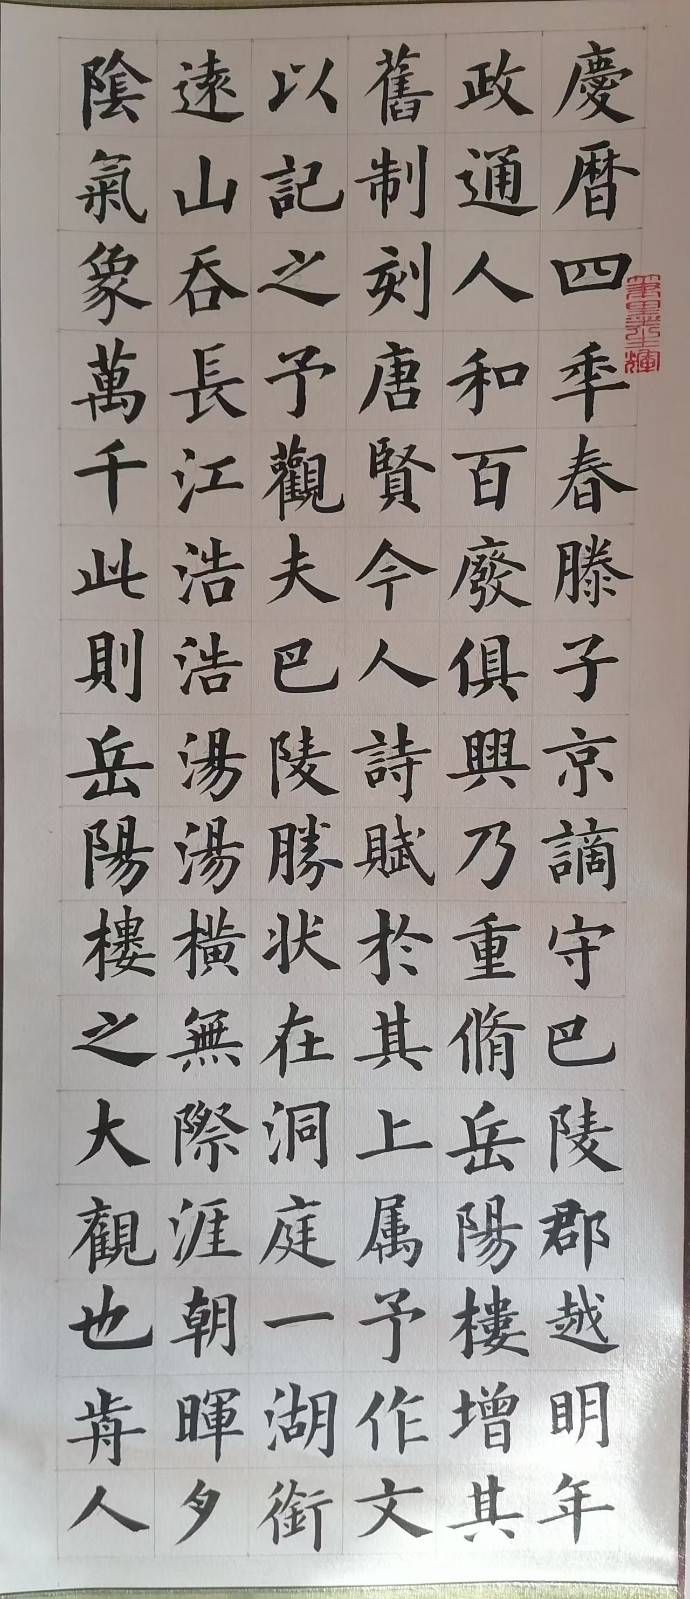 慶暦四秊春滕子京謫守巴陵郡越明年
政通人和百廢俱興乃重脩岳陽樓增其
舊制刻唐賢今人詩賦於其上属予作文
以記之予觀夫巴陵勝状在洞庭一湖銜
遠山吞長江浩浩湯湯橫無際涯朝暉夕
陰氣象萬千此則岳陽樓之大觀也歬人